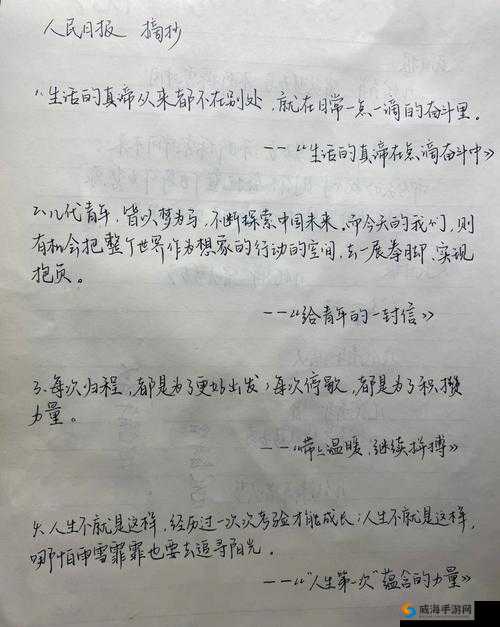 人民日报 摘抄
1.生活的真谛从来都不在别处,就在日常一点一滴的奋斗里。
——《生活的真谛在点滴奋斗中》
2.几代青年,皆以梦为马,不断探索中国未来。而今天的我们,则
有机会把整个世界作为想象的行动的空间,去一展拳脚、实现
抱负。
——《给青年的一封信》
3.每次归程,都是为了更好出发;每次停歇,都是为了积攒
力量。
——《带上温暖,继续拼搏》
4.人生不就是这样,经历过一次次考验才能成长;人生不就是这样,
哪怕雨雪霏霏也要去追寻阳光。
——《“人生第一次”蕴含的力量》
威海手游网